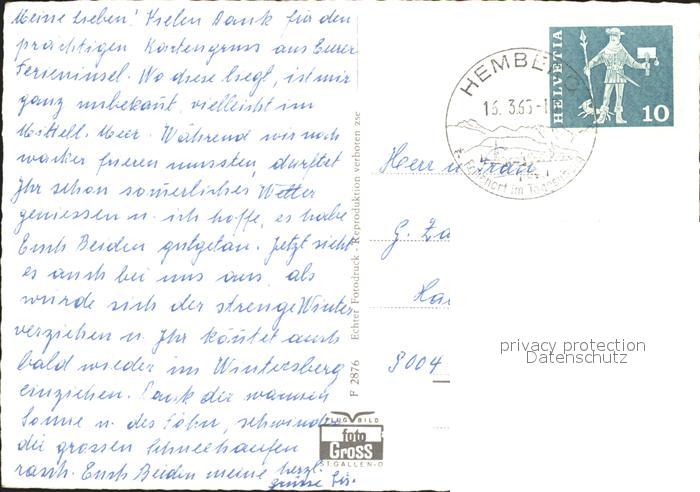 Meine Lieben! Vielen Dank für den
prächtigen Kartengruss aus Eurer
Ferieninsel. Wo diese liegt, ist mir
ganz unbekannt, vielleicht im
Mittell. Meer. Während wir noch
wacker frieren mussten, durftet
Ihr schon sommerliches Wetter
geniessen u. ich hoffe, es habe
Euch Beiden gutgetan. Jetzt sieht
es auch bei uns aus, als
würde sich der strenge Winter
verziehen u. Ihr könntet auch
bald wieder im Wintersberg
einziehen. Dank der warmen
Sonne u. des Föhn, schwinden
die grossen Schneehaufen
rasch. Euch Beiden meine herzl.
grüsse
F 2876 Echter Fotodruck - Reproduktion verboten zsc
FLUGBILD
foto
GROSS
ST. GALLEN-O
HEMBERG
16. 3.65-1
Ferienort im Toggenburg
HELVETIA
10
Herr u. Frau
G. Za
Ha
8004
privacy protection
Datenschutz